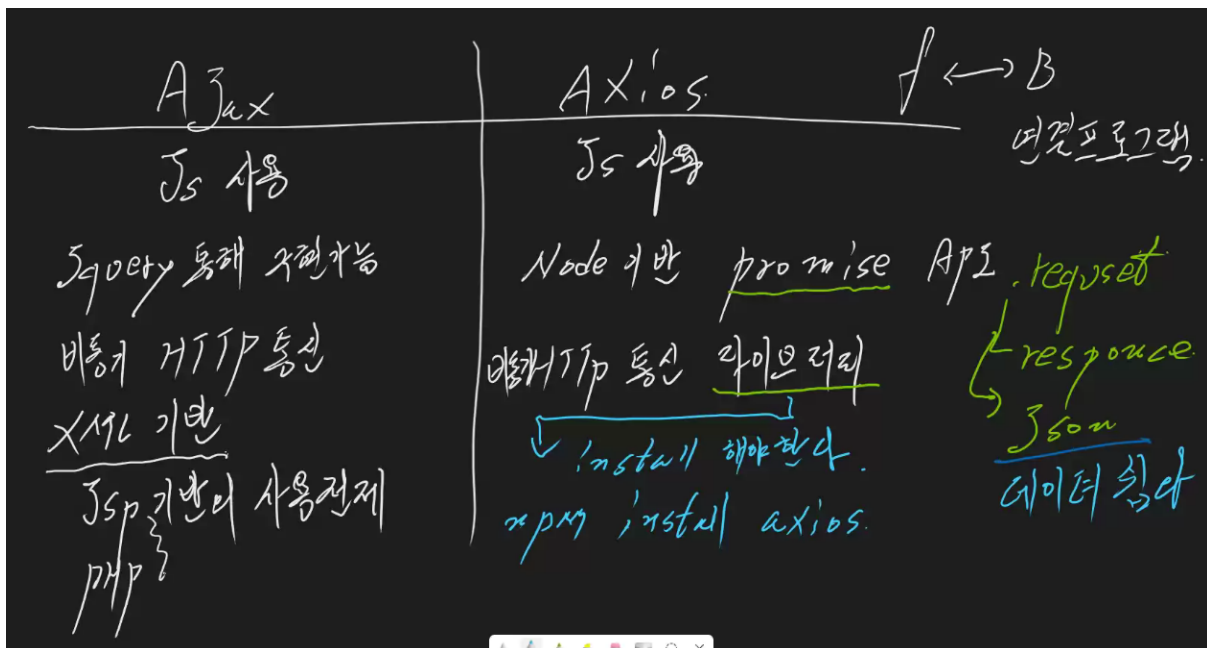 Ajax
Js 사용
Jquery 통해 구현가능
비동기 HTTP 통신
XML 기반
Jsp 기반의 사용전제
PHP
AXios.
Js 사용
Node 기반 promise API
비동기HTTP 통신 라이브러리
install 해야한다.
npm install axios.
f ↔ B
연결프로그램.
.requset
response
Json
데이터 쉽다